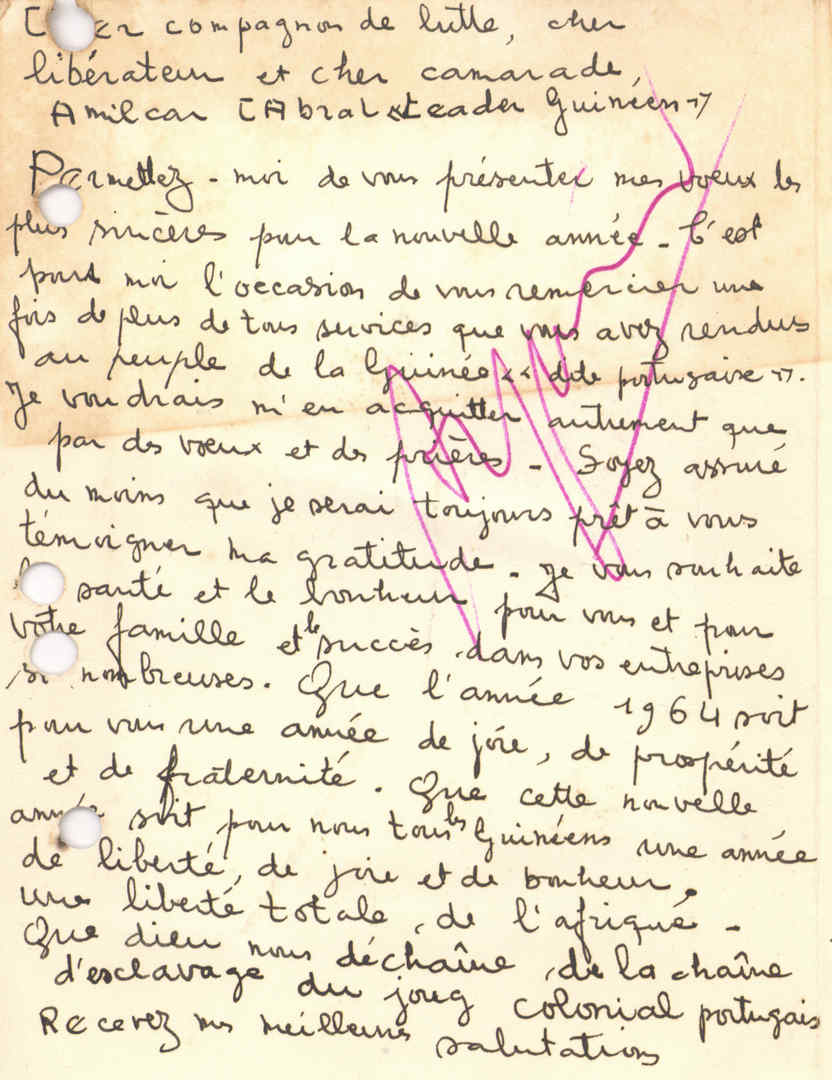 Cher compagnon de lutte, cher
libérateur et cher camarade,
Amilcar CAbral « Leader Guinéen »
Permettez-moi de vous présenter mes voeux les
plus sincères pour la nouvelle année - C'est
pour moi l'occasion de vous remercier une
fois de plus de tous services que vous avez rendus
au peuple de la Guinée « dite portugaise ».
Je voudrais m'en acquitter autrement que
par des voeux et des prières - Soyez assuré
du moins que je serai toujours prêt à vous
témoigner ma gratitude - je vous souhaite
la santé et le bonheur pour vous et pour
votre famille et le succès dans vos entreprises
si nombreuses. Que l'année 1964 soit
pour vous une année de joie, de prospérité
et de fraternité. Que cette nouvelle
année soit pour nous tous les Guinéens une année
de liberté, de joie et de bonheur,
une liberté totale, de l'afrique -
Que dieu nous déchaîne, de la chaîne
d'esclavage du joug colonial portugais
Recevez mes meilleures salutations